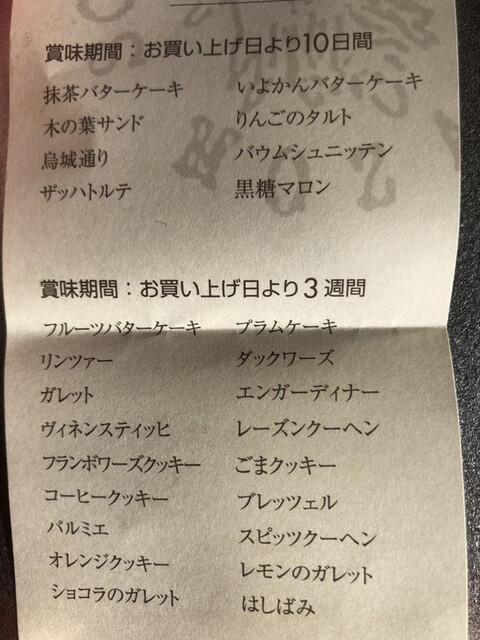 賞味期間：お買い上げ日より10日間
抹茶バターケーキ　いよかんバターケーキ
木の葉サンド　りんごのタルト
烏城通り　バウムシュニッテン
ザッハトルテ　黒糖マロン
賞味期間：お買い上げ日より3週間
フルーツバターケーキ　プラムケーキ
リンツァー　ダックワーズ
ガレット　エンガーディナー
ヴィネンスティッヒ　レーズンクーヘン
フランボワーズクッキー　ごまクッキー
コーヒークッキー　ブレッツェル
パルミエ　スピッツクーヘン
オレンジクッキー　レモンのガレット
ショコラのガレット　はしばみ